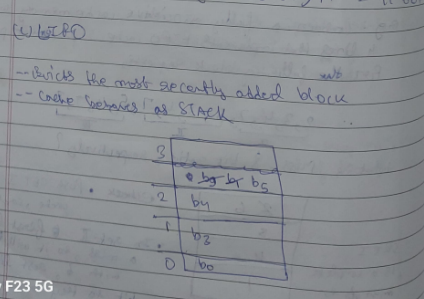 (c) LIFO
-- Evicts the most recently added block
-- Cache behaves as STACK
3
b5
2 b4
1 b3
0 b0
F23 5G